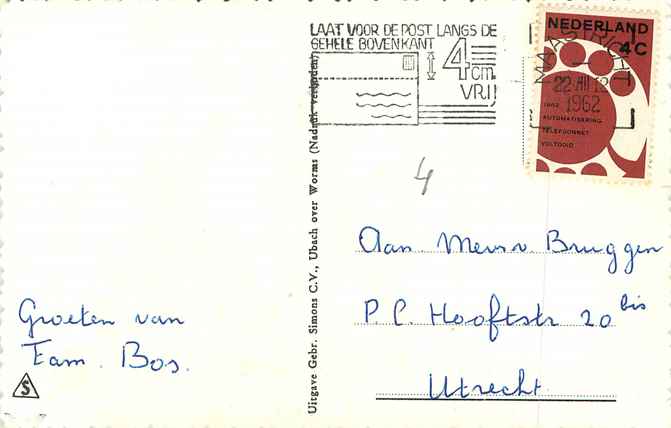 LAAT VOOR DE POST LANGS DE
GEHELE BOVENKANT
4 cm
VRIJ
NEDERLAND
4 C
MAASTRICHT
1962
1962
AUTOMATISERING
TELEFOONNET
VOLTOOID
4
Uitgave Gebr. Simons C.V., Ubach over Worms (Nadruk verboden)
Aan Mevr v Bruggen
P.C. Hooftstr 20 bis
Utrecht
Groeten van
Fam. Bos.
S